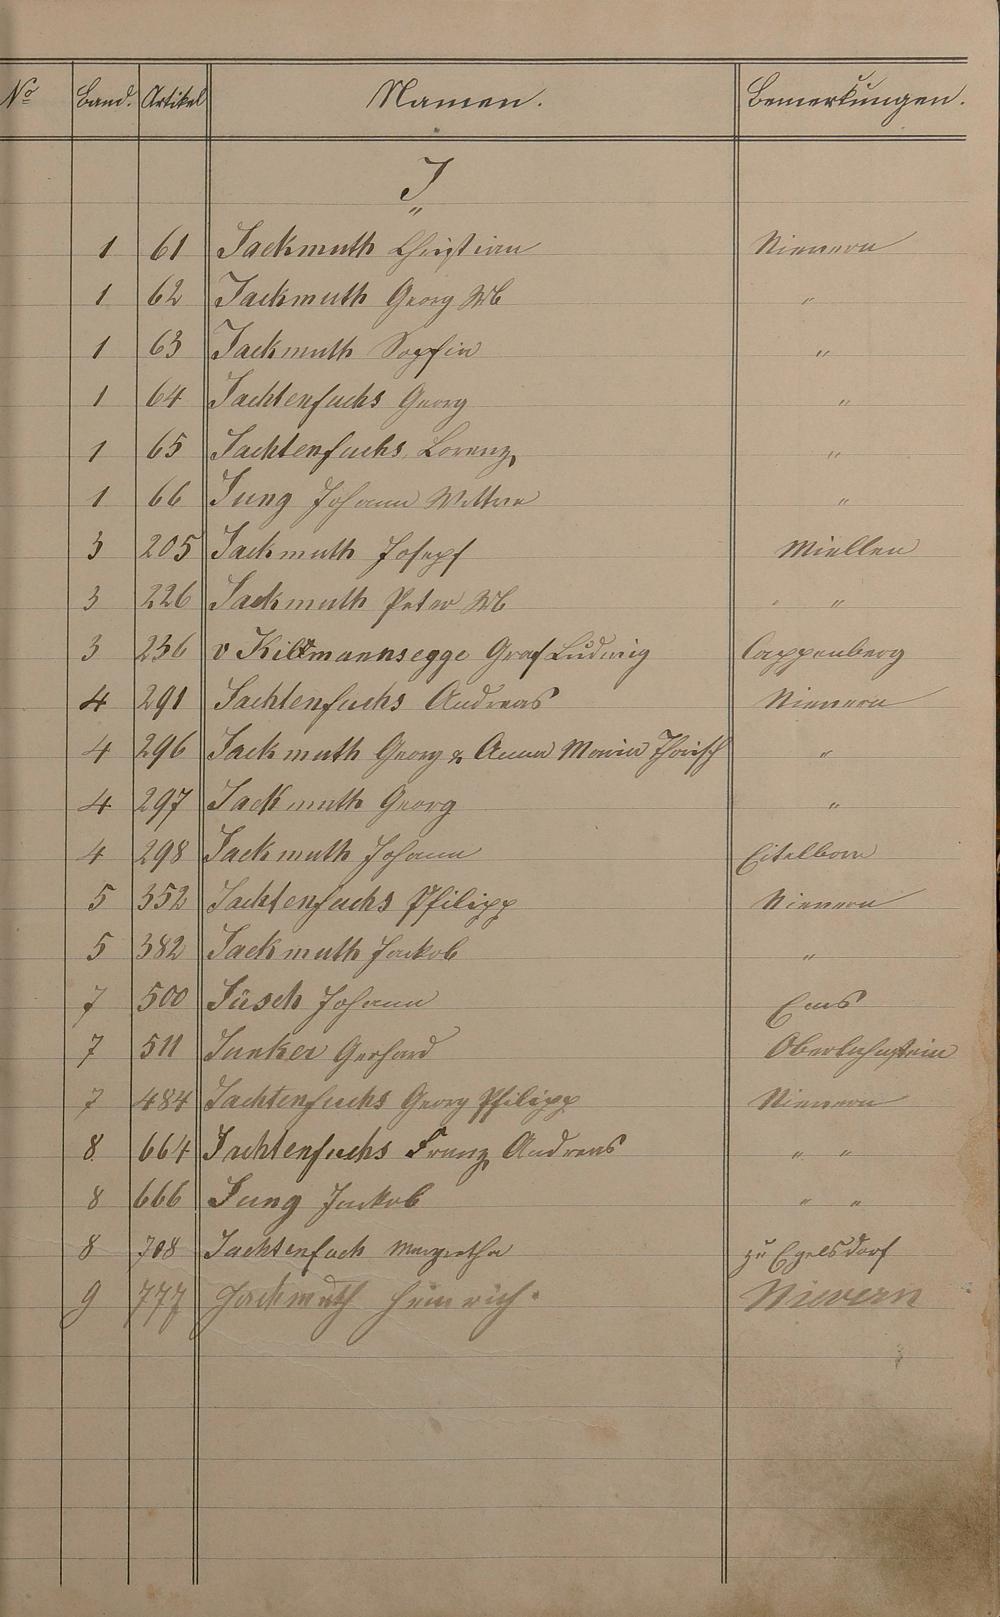 No Band. Artikel Namen. Bemerkungen.
J
1 61 Jackmuth Christian Nievern
1 62 Jackmuth Georg Wb "
1 63 Jackmuth Sophie "
1 64 Jachtenfuchs Georg "
1 65 Jachtenfuchs Lorenz "
1 66 Jung Johann Wittwe "
3 205 Jackmuth Joseph Miellen
3 226 Jackmuth Peter Wb " "
3 236 v Kiltmannsegge Graf Ludwig Cappenberg
4 291 Jachtenfuchs Andreas Nievern
4 296 Jackmuth Georg & Anna Maria "
4 297 Jackmuth Georg "
4 298 Jackmuth Johann Eitelborn
5 352 Jachtenfuchs Philipp Nievern
5 382 Jackmuth Jackob "
7 500 Jüsch Johann Ems
7 511 Junker Gerhard Oberlahnstein
7 484 Jachtenfuchs Georg Philipp Nievern
8 664 Jachtenfuchs Franz Andreas " "
8 666 Jung Jackob " "
8 708 Jachtenfach Margretha zu Egelsdorf
9 777 Jackmuth Heinrich. Nievern